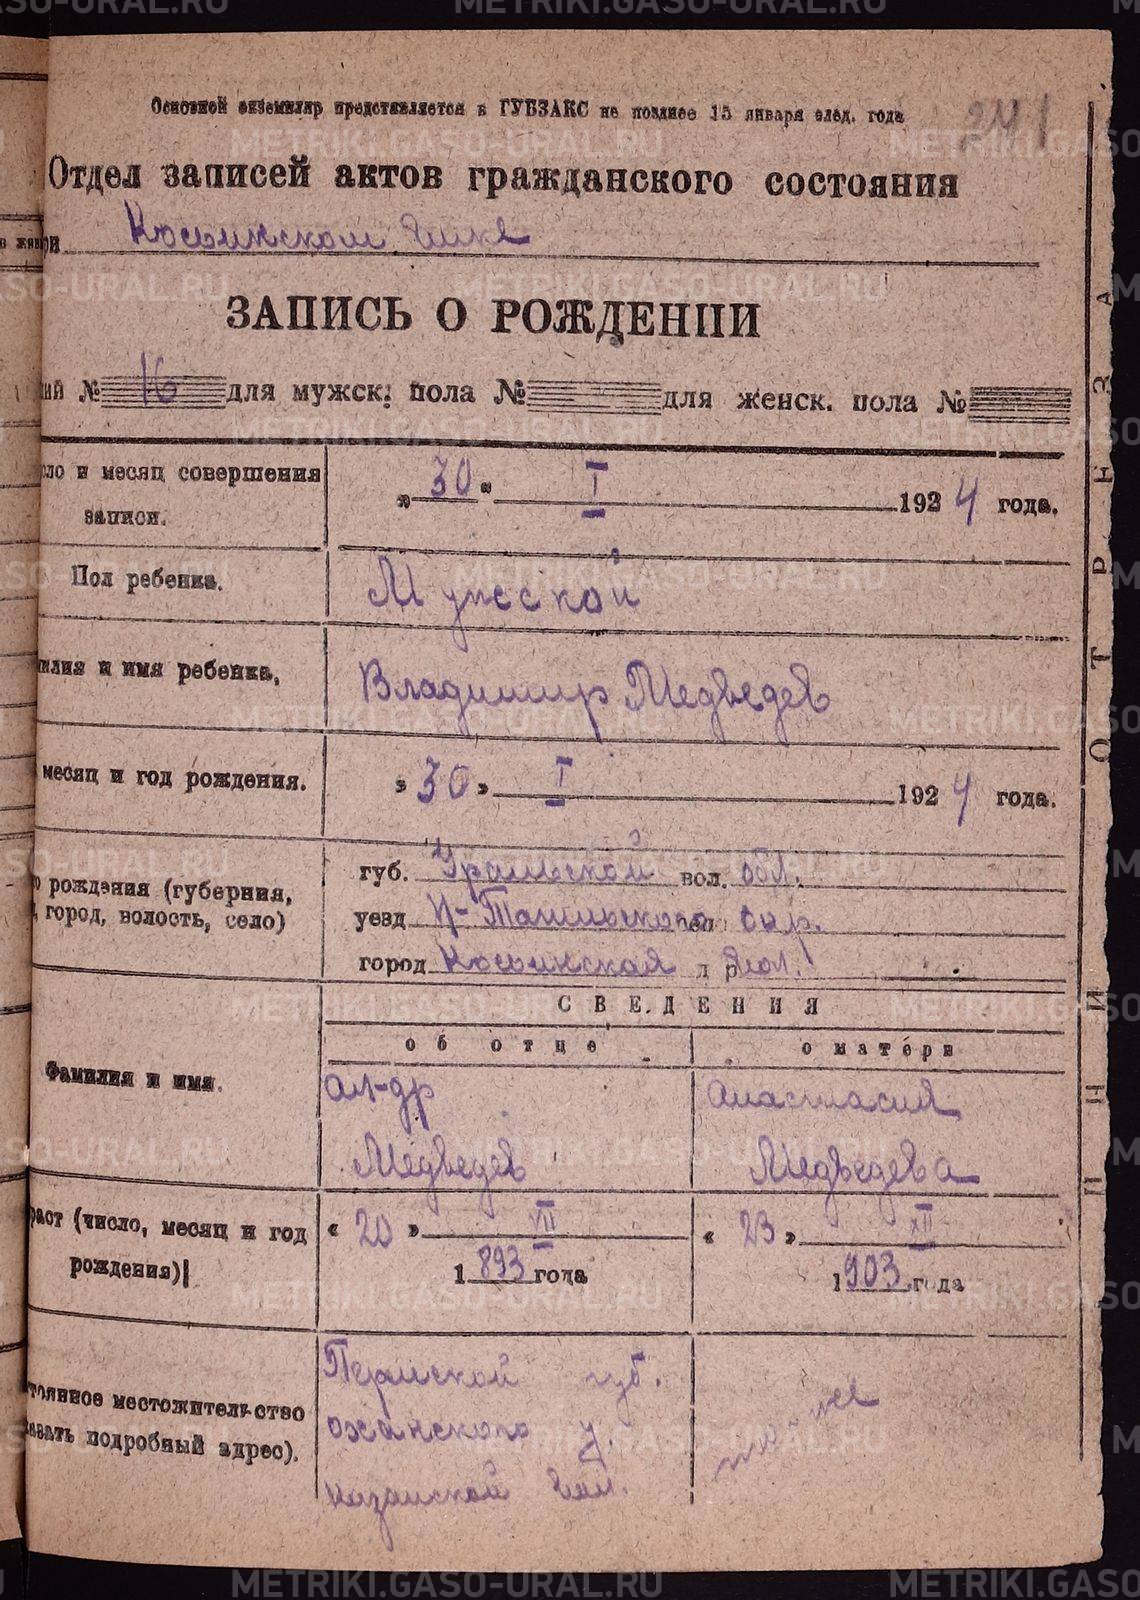 METRIKI.GASO-URAL.RU
Основной экземпляр представляется в ГУБЗАКС не позднее 15 января след. года
241
Отдел записей актов гражданского состояния
при
ЗАПИСЬ О РОЖДЕНИИ
№ 16 для мужск. пола № для женск. пола №
и месяц совершения записи. « 30 » I 1924 года.
Пол ребенка. Мужской
и имя ребенка, Владимир Медведев
месяц и год рождения. » 30 » I 1924 года.
рождения (губерния, город, волость, село)
губ. Уральской вол. обл.
уезд Н-Тагильского окр.
город Косьинская вол.
СВЕДЕНИЯ
об отце о матери
Фамилия и имя. Ал-др Медведев Анастасия Медведева
(число, месяц и год рождения)
« 20 » VII 1893 года
« 23 » XII 1903 года
местожительство
подробный адрес).
Пермской губ.
оханского у.
Казанской
ЛИНИЯ ОТРЕЗА